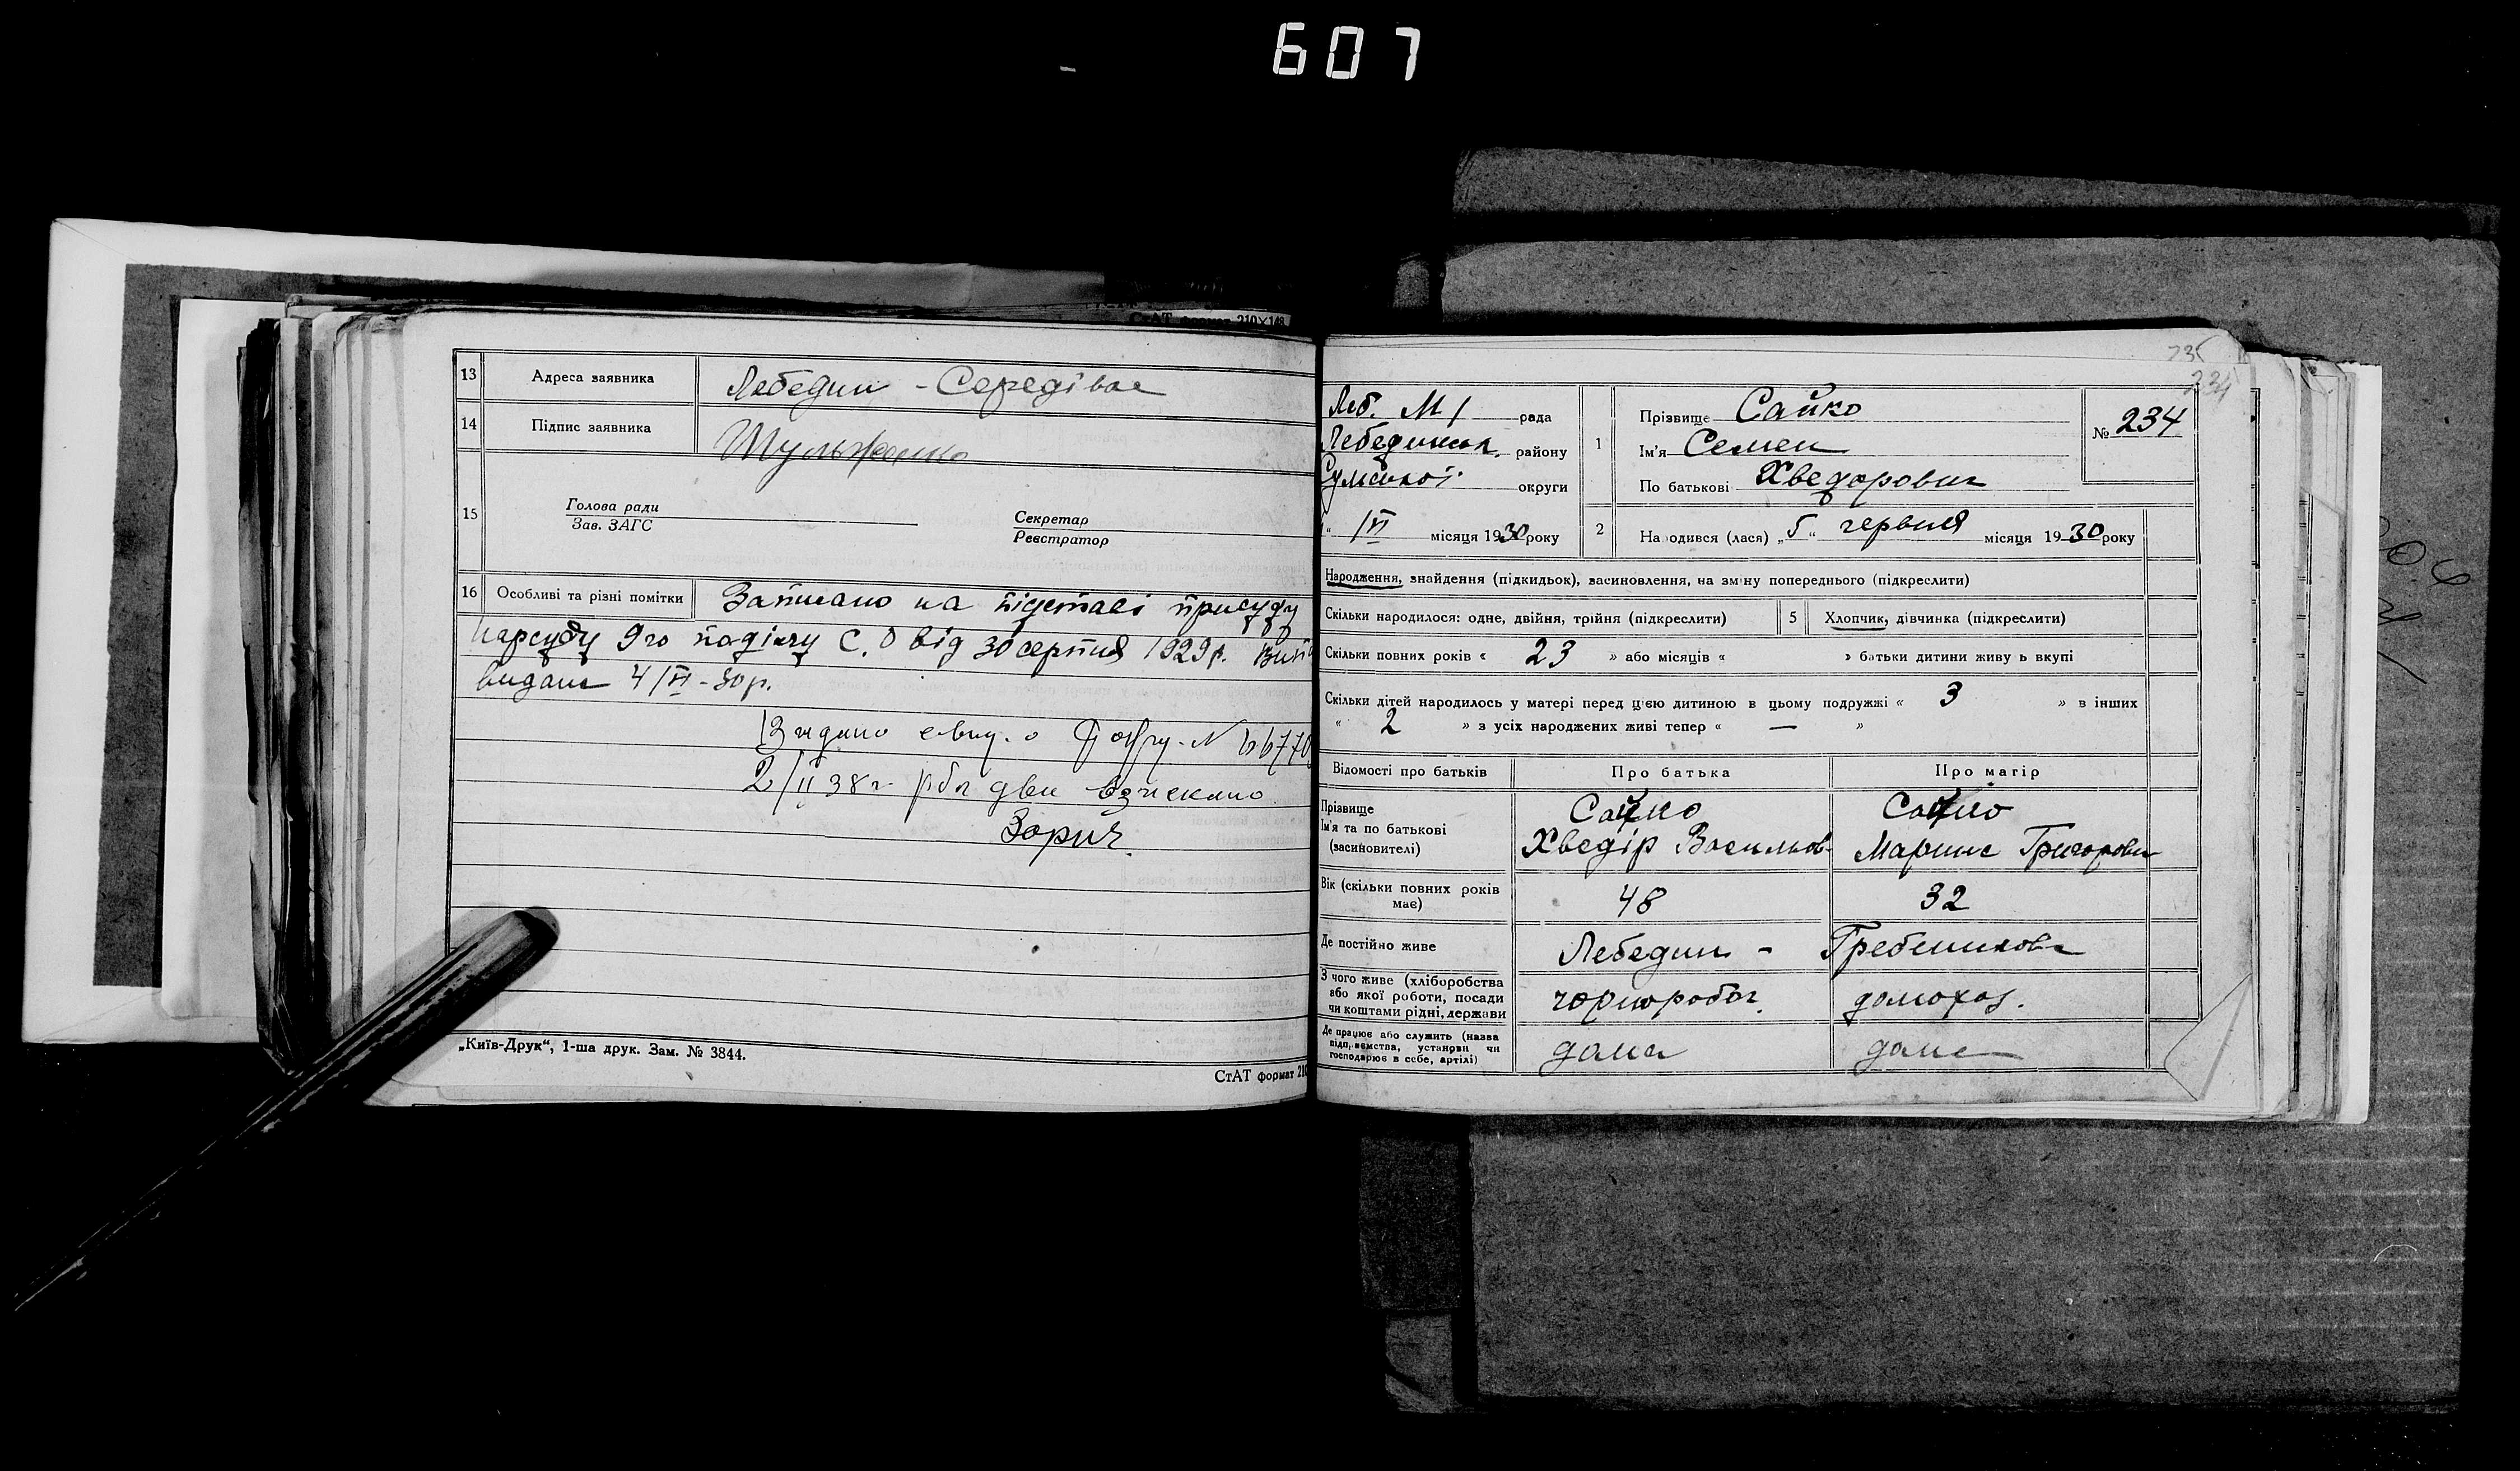 607
СтАТ формат 210×148
13 Адреса заявника Лебедин - Середівка
14 Підпис заявника Шульженко
15 Голова ради
Зав. ЗАГС
Секретар
Реєстратор
16 Особливі та різні помітки Записано на підставі присуду
Нарсуду 9го поділу С.О від 30 серпня 1929 р.
видано 4/VI-30 р.
2/II 38 г. два взискано
Зорич
„Київ-Друк“, 1-ша друк. Зам. № 3844.
СтАТ формат 210
235
234
Леб. М/ рада
Лебединськ. району
Сумської округи
/VI місяця 1930 року
1 Прізвище Сайко
Ім'я Семен
По батькові Хведорович
№ 234
2 Народився (лася) „5“ червня місяця 1930 року
Народження, знайдення (підкидьок), засиновлення, на зміну попереднього (підкреслити)
Скільки народилося: одне, двійня, трійня (підкреслити) 5 Хлопчик, дівчинка (підкреслити)
Скільки повних років « 23 » або місяців « » батьки дитини живуть вкупі
Скільки дітей народилось у матері перед цією дитиною в цьому подружжі « 3 » в інших
« 2 » з усіх народжених живі тепер « — »
Відомості про батьків Про батька Про матір
Прізвище Сайко Сайко
Ім'я та по батькові Хведір Васильов. Марина Григоровн
(засиновителі)
Вік (скільки повних років має) 48 32
Де постійно живе Лебедин - Гребенників
З чого живе (хліборобства або якої роботи, посади чи коштами рідні, держави чорнороб. домохоз.
Де працює або служить (назва підприємства, установи чи господарює в себе, артілі) дома дома